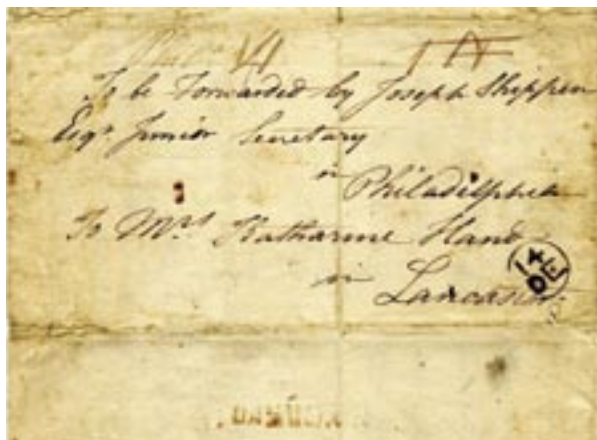 To be Forwarded by Joseph Shippen
Esqr. Junior Secretary
in Philadelphia
To Mrs Katharine Hand
in Lancaster
14
DE